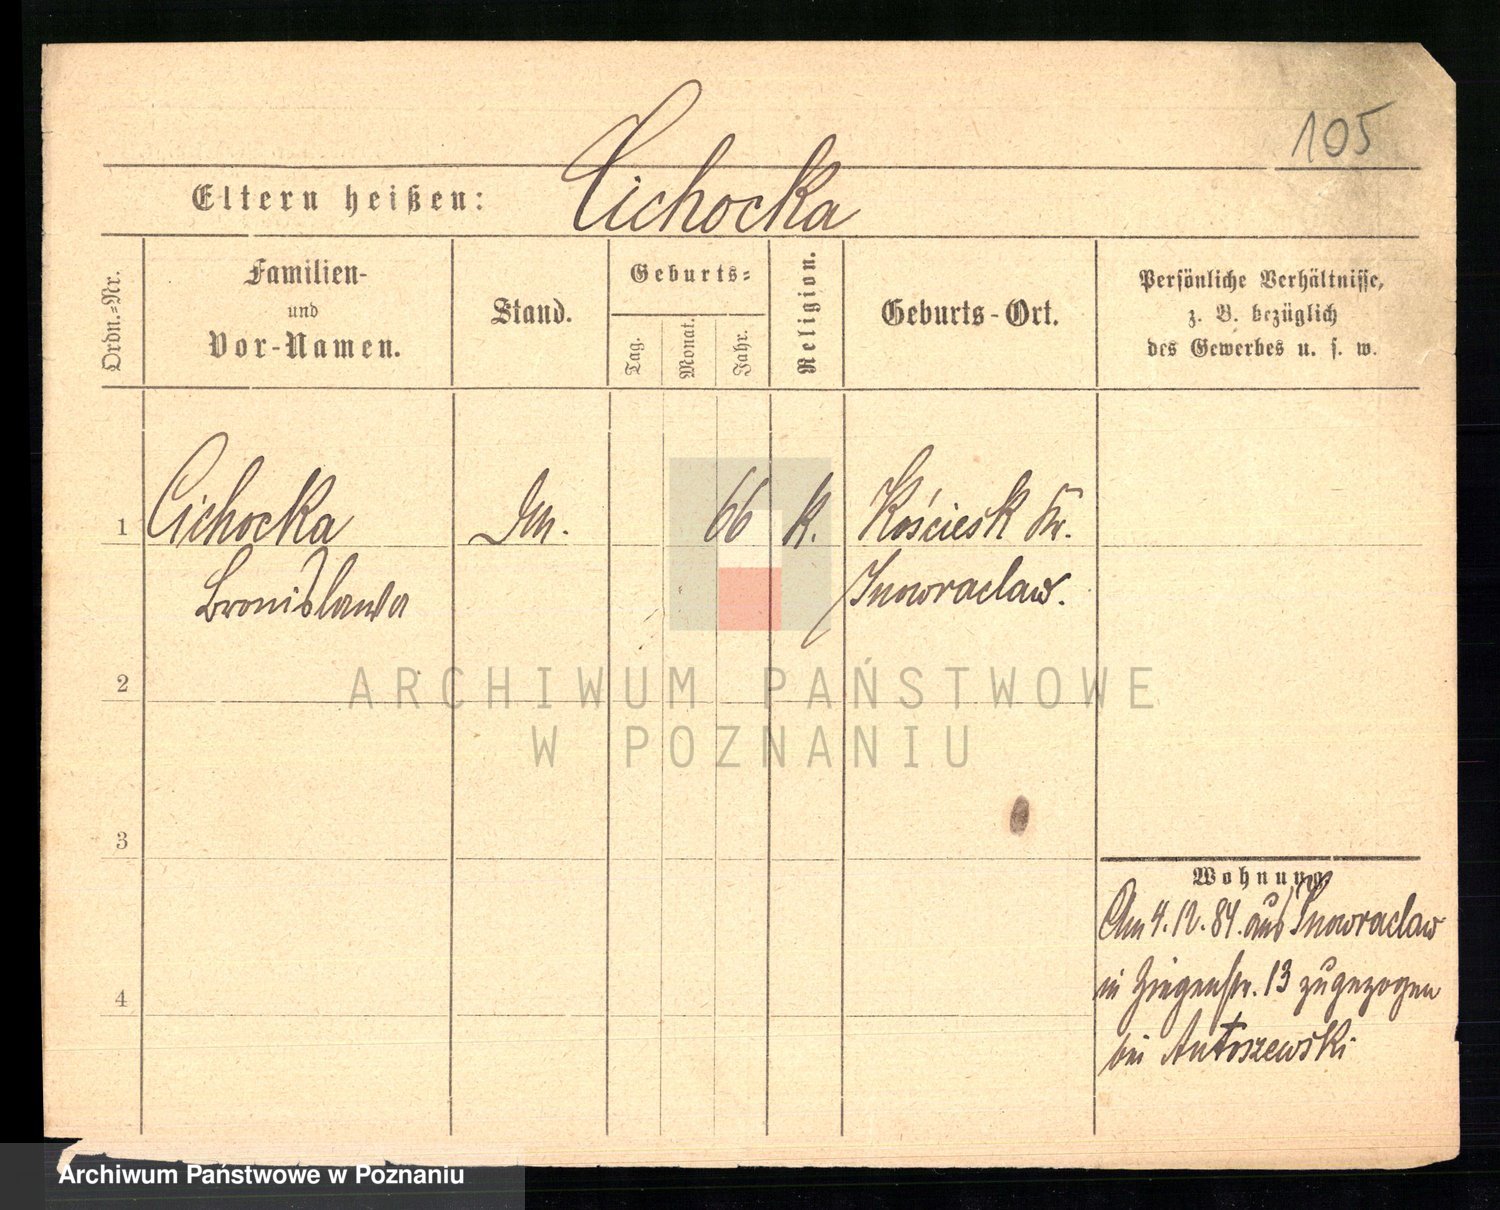 105
Eltern heißen: Cichocka
Ordn.-Nr.
Familien-
und
Vor-Namen.
Stand.
Geburts-
Tag.
Monat.
Jahr.
Religion.
Geburts-Ort.
Persönliche Verhältnisse,
z. B. bezüglich
des Gewerbes u. s. w.
1 Cichocka 66 k. Kościesk Kr.
Bronislawa Inowraclaw.
2
ARCHIWUM PAŃSTWOWE
W POZNANIU
3
Wohnung
Am 4.12.84. aus Inowraclaw
in Ziegenstr. 13 zugezogen
4
bei Antoszewski
Archiwum Państwowe w Poznaniu